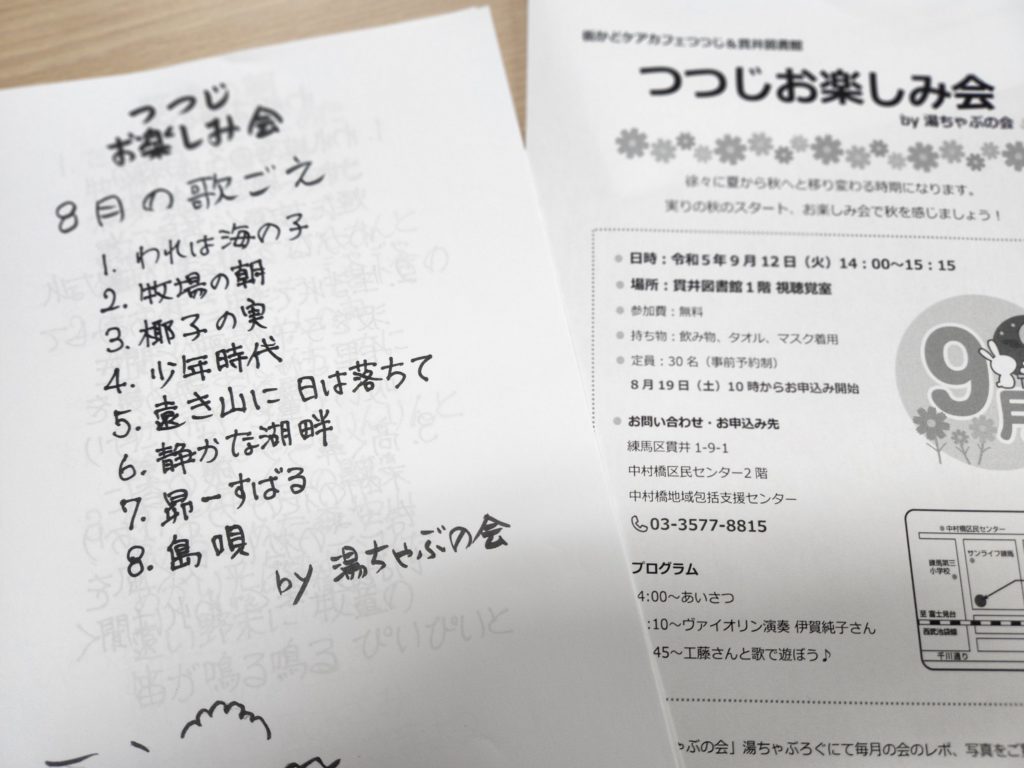 つつじ
お楽しみ会
8月の歌ごえ
1. われは海の子
2. 牧場の朝
3. 椰子の実
4. 少年時代
5. 遠き山に日は落ちて
6. 静かな湖畔
7. 昴ーすばる
8. 島唄
by 湯ちゃぶの会
街かどケアカフェつつじ&貫井図書館
つつじお楽しみ会
by 湯ちゃぶの会
徐々に夏から秋へと移り変わる時期になります。
実りの秋のスタート、お楽しみ会で秋を感じましょう!
日時:令和5年9月12日(火)14:00~15:15
場所:貫井図書館1階 視聴覚室
参加費:無料
持ち物:飲み物、タオル、マスク着用
定員:30名(事前予約制)
8月19日(土)10時からお申込み開始
9月
お問い合わせ・お申込み先
練馬区貫井1-9-1
中村橋区民センター2階
中村橋地域包括支援センター
03-3577-8815
プログラム
4:00~あいさつ
:10~ヴァイオリン演奏 伊賀純子さん
45~工藤さんと歌で遊ぼう♪
※中村橋区民センター
サンライフ練馬
練馬第三
小学校
至 富士見台
西武池袋線
千川通り
ゃぶの会」湯ちゃぶろぐにて毎月の会のレポ、写真をご